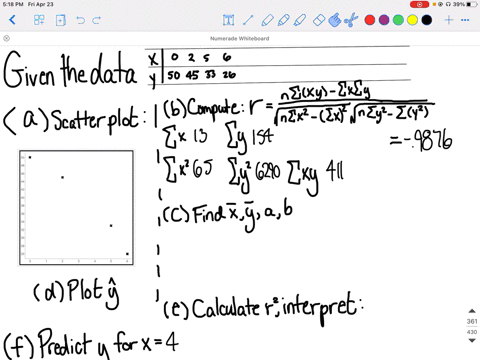 5:18 PM Fri Apr 23
39%
Numerade Whiteboard
Given the data
x 0 2 5 6
y 50 45 33 26
(a) Scatterplot:
(b) Compute: r = n∑(xy) - ∑x∑y / √n∑x² - (∑x)² √n∑y² - ∑(y²)
= -.9876
∑x 13 ∑y 154
∑x² 65 ∑y² 6290 ∑xy 411
(c) Find x̄, ȳ, a, b
(d) Plot ŷ
(e) Calculate r², interpret:
(f) Predict y for x = 4
361
430